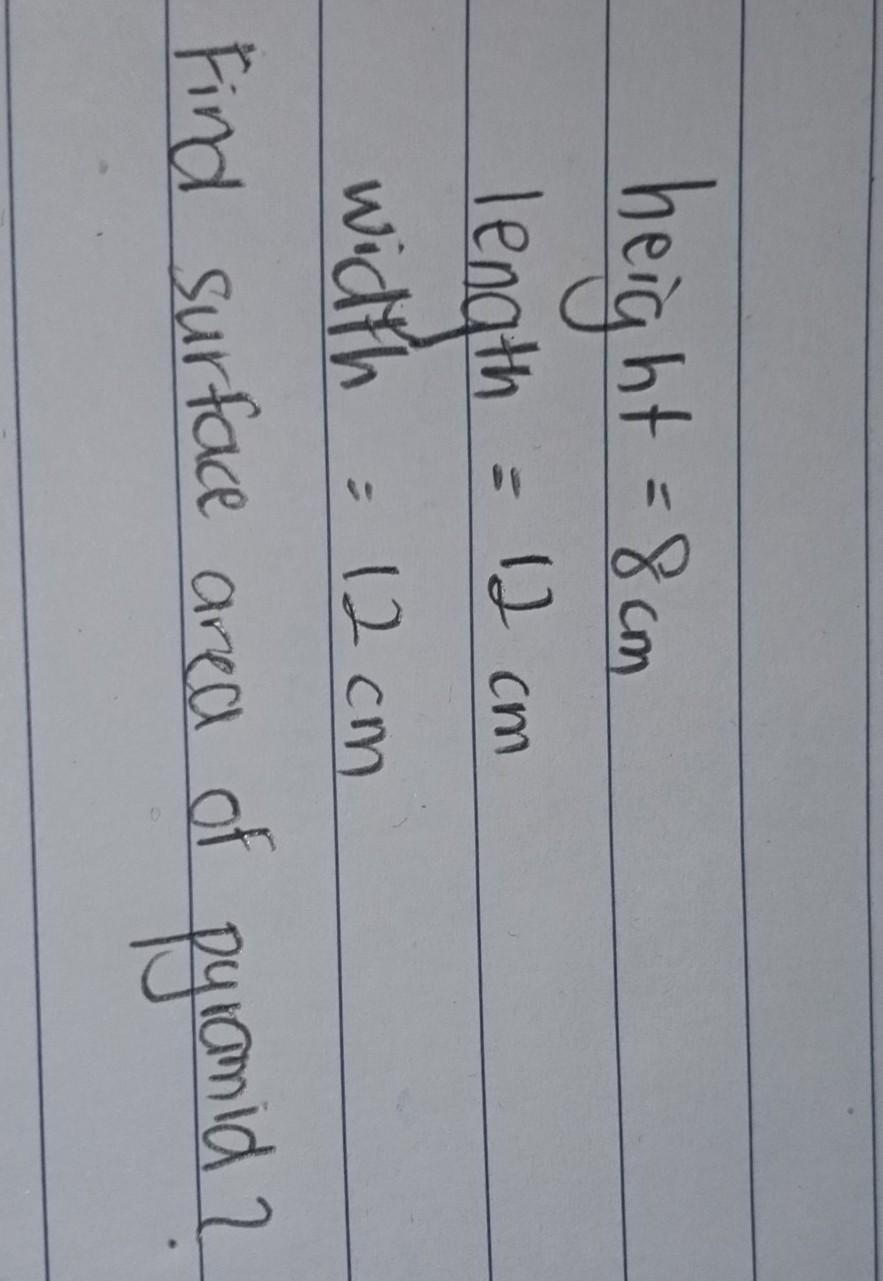 height = 8cm
length = 12 cm
width = 12 cm
Find surface area of pyramid?